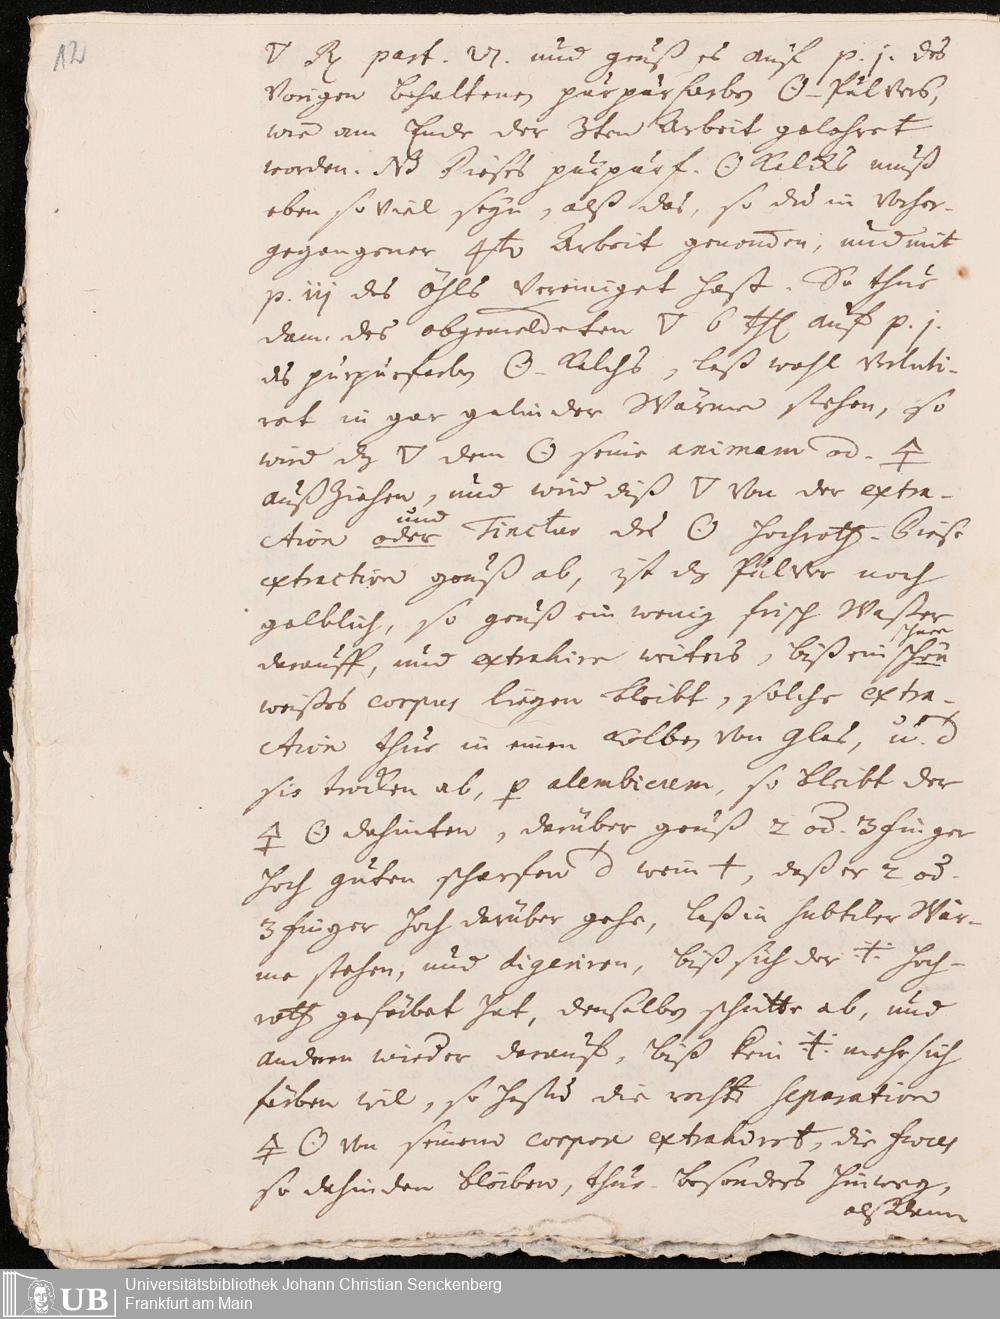 12
🜄 ℞ part. VI. und geuß es auf p. j. des
vorigen behaltenen purpurfarben ☉-Pulvers,
wie am Ende der 3ten Arbeit gelehret
worden. NB dieses purpurf. ☉ Kalchs muß
eben so viel seyn, alß das, so du in vorher-
gegangener 4ten Arbeit genommen, und mit
p. iij des Öhls vereiniget hast. So thue
dann des obgemeldeten 🜄 6 thl auf p. j.
des purpurfarben ☉-Kalchs, laß wohl verluti-
ret in gar gelinder Wärme stehen, so
wird dz 🜄 dem ☉ seine animam od. 🜍
außziehen, und wird diß 🜄 von der extra-
ction oder und Tinctur des ☉ hochroth. Diese
extraction geuß ab, ist dz Pulver noch
gelblich, so geuß ein wenig frisch Wasser
darauff, und extrahire weiters, biß ein schön schnee
weißes corpus liegen bleibt, solche extra-
ction thue in einen Kolben von Glas, u. d
sie trocken ab, p alembicum, so bleibt der
🜍 ☉ dahinten, darüber geuß 2 od. 3 finger
hoch guten scharfen d wein +, daß er 2 od.
3 finger hoch darüber gehe, laß in subtiler Wär-
me stehen, und digeriren, biß sich der ⁜ hoch-
roth gefärbet hat, denselben schütte ab, und
anderen wieder darauf, biß kein ⁜ mehr sich
färben wil, so hastu die rechte Separation
🜍 ☉ von seinem corpore extrahiret, die faeces
so dahinden bleiben, thue besonders hinweg,
alßdann
UB
Universitätsbibliothek Johann Christian Senckenberg
Frankfurt am Main